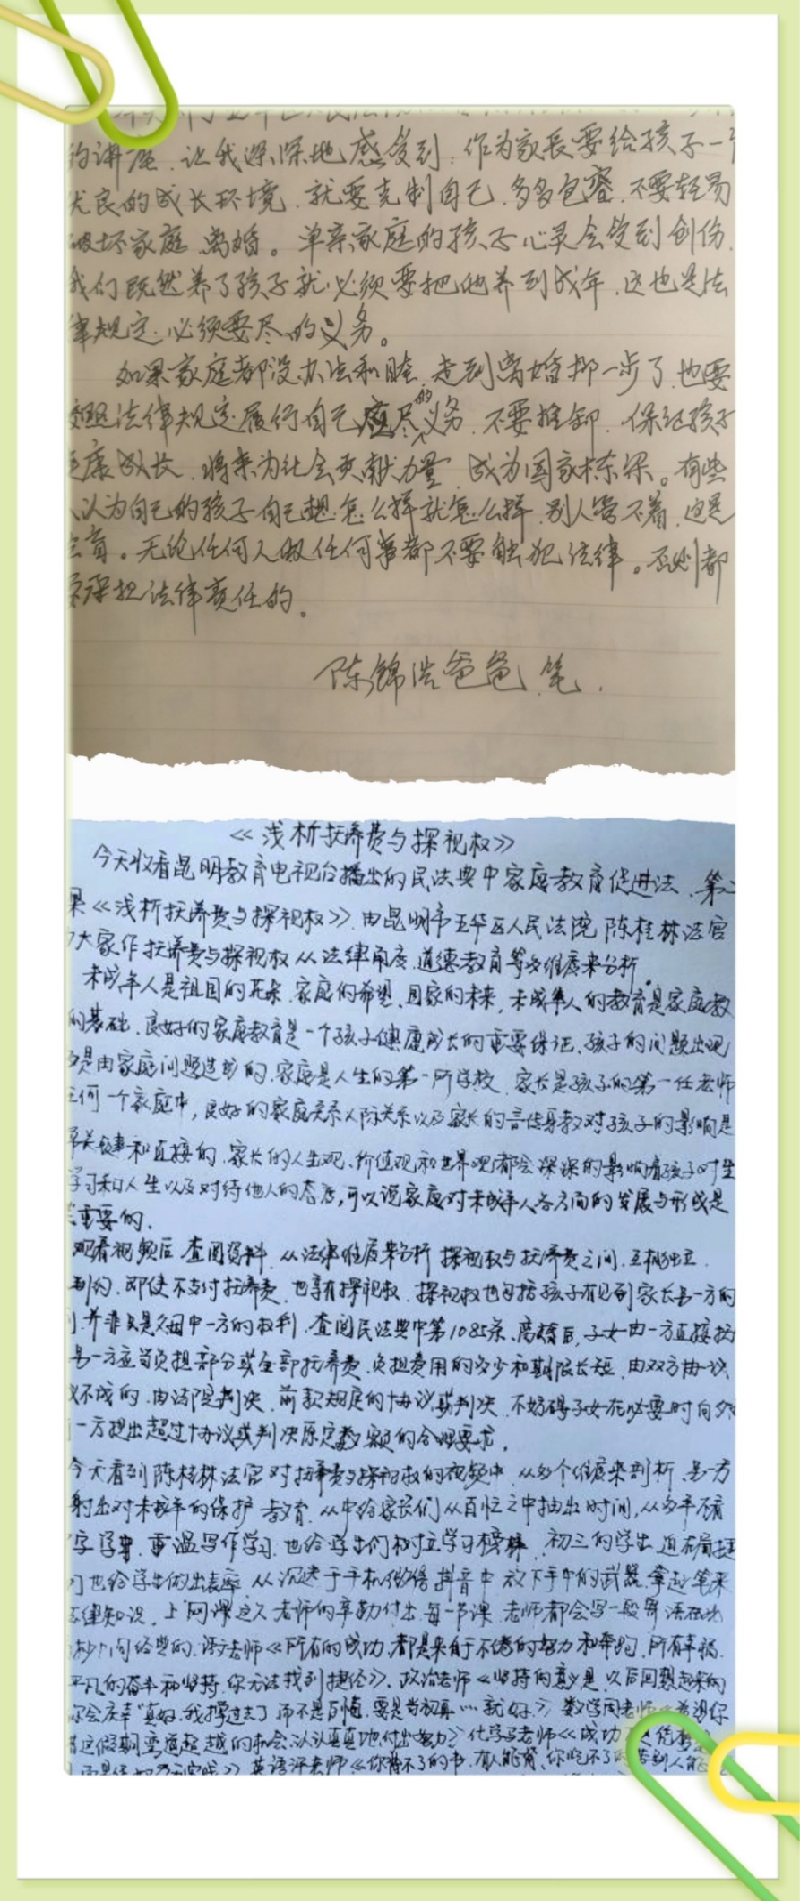 的讲座，让我深深地感受到：作为家长要给孩子一
优良的成长环境，就要克制自己，多多包容，不要轻易
破坏家庭，离婚。单亲家庭的孩子心灵会受到创伤，
我们既然养了孩子就必须要把他养到成年，这也是法
律规定必须要尽的义务。
如果家庭都没办法和睦，走到离婚那一步了，也要
按照法律规定履行自己应尽的义务，不要推卸，保证孩子
健康成长，将来为社会贡献力量，成为国家栋梁。有些
人认为自己的孩子自己想怎么样就怎么样，别人管不着，这是
法盲。无论任何人做任何事都不要触犯法律。否则都
要承担法律责任的。
陈锦浩爸爸 笔.
《浅析抚养费与探视权》
今天收看昆明教育电视台播出的民法典中家庭教育促进法，第二
课《浅析抚养费与探视权》，由昆明市五华区人民法院陈桂林法官
为大家作抚养费与探视权从法律角度，道德教育等多维度来分析。
未成年人是祖国的花朵，家庭的希望，国家的未来，未成年人的教育是家庭教
的基础，良好的家庭教育是一个孩子健康成长的重要保证，孩子的问题出现
是由家庭问题造成的，家庭是人生的第一所学校，家长是孩子的第一任老师
任何一个家庭中，良好的家庭关系人际关系以及家长的言传身教对孩子的影响是
关键和直接的，家长的人生观、价值观和世界观都会深深的影响着孩子对生
学习和人生以及对待他人的态度，可以说家庭对未成年人各方面的发展与形成是
重要的。
观看视频后，查阅资料，从法律维度来分析 探视权与抚养费之间，互相独立，
即使不支付抚养费，也享有探视权，探视权也包括孩子有见到家长另一方的
并非只是父母中一方的权利，查阅民法典中第1085条，离婚后，子女由一方直接抚
另一方应当负担部分或全部抚养费，负担费用的多少和期限长短，由双方协议
议不成的，由法院判决，前款规定的协议或判决，不妨碍子女在必要时向父
一方提出超过协议或判决原定数额的合理要求。
今天看到陈桂林法官对抚养费与探视权的视频中，从多个维度来剖析，另一方
射出对未成年的保护 教育，从中给家长们从百忙之中抽出时间，从多年不看
重温写作学习，也给学生们树立学习榜样，初三的学生，
也给学生做出表率，从沉迷于手机微信抖音中放下手中的武器，拿起笔来
法律知识，上网课这久老师的辛勤付出，每一节课，老师都会写一段寄语
间经典的，语文老师《所有的成功，都是来自于不倦的努力和奔跑，所有幸福，
平凡的奋斗和坚持，你无法找到捷径》，政治老师《坚持的意义是，以后回想起来的
你会庆幸"真好，我撑过去了"而不是后悔，要是当初再…就好》数学周老师
这假期弯道超越的机会，认认真真地付出努力》化学老师《成功
英语评老师《你背不了的书，有人能背，你吃不了的苦别人能